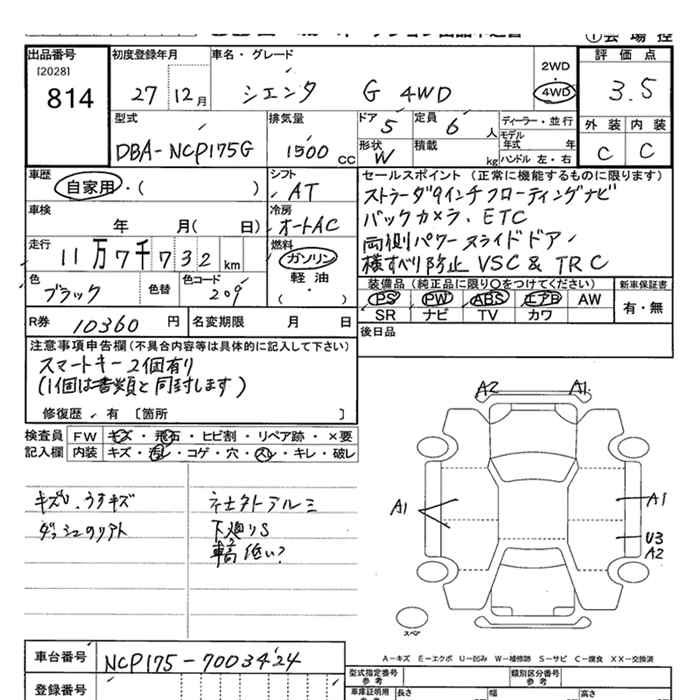 出品番号
[2028]
814
初度登録年月
27 12月
車名・グレード
シエンタ G 4WD
2WD
4WD
評価点
3.5
外装 内装
C C
型式
DBA-NCP175G
排気量
1500 CC
ドア
5
定員
6 人
形状
W
積載
kg
ディーラー・並行
モデル
年式 年
ハンドル 左・右
車歴
自家用・( )
シフト
AT
車検
年 月( 日)
冷房
オートAC
走行
11万7千732km
燃料
ガソリン
軽油
色
ブラック
色替
色コード
209
セールスポイント(正常に機能するものに限ります)
ストラーダ9インチフローティングナビ
バックカメラ、ETC
両側パワースライドドア
横すべり防止 VSC & TRC
装備品(純正品に限り○をつけてください)
PS PW ABS エアB AW
SR ナビ TV カワ
新車保証書
有・無
後日品
R券 10360 円
名変期限 月 日
注意事項申告欄(不具合内容等は具体的に記入して下さい)
スマートキー2個有り
(1個は書類と同封します)
修復歴 有 〔箇所 〕
検査員
記入欄
FW キズ・飛石・ヒビ割・リペア跡・×要
内装 キズ・汚レ・コゲ・穴・スレ・キレ・破レ
キズU、うすキズ
ダッシュのリアト
ネセタトアルミ
下廻りS
車高低い?
A2 A1
A1 A1
U3
A2
スペア
A-キズ E-エクボ U-凹み W-補修跡 S-サビ C-腐食 XX-交換済
車台番号
NCP175-7003424
登録番号
型式指定番号
参考
類別区分番号
参考
車庫証明用
参考
長さ 幅 高さ